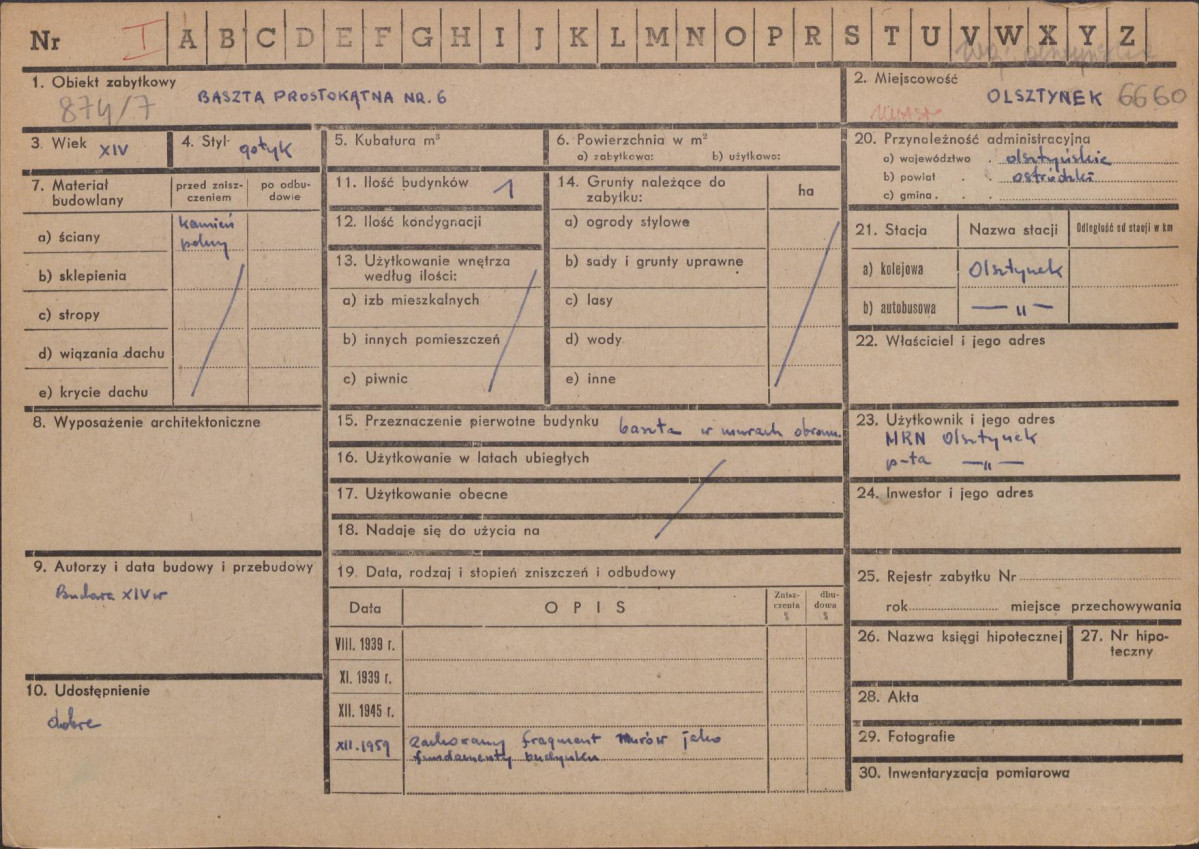 Nr I A B C D E F G H I J K L M N O P R S T U V W X Y Z
1. Obiekt zabytkowy
874/7 BASZTA PROSTOKĄTNA NR. 6
2. Miejscowość
OLSZTYNEK 6660
3. Wiek XIV
4. Styl gotyk
5. Kubatura m³
6. Powierzchnia w m²
a) zabytkowa: b) użytkowa:
7. Materiał budowlany
przed znisz-
czeniem
po odbu-
dowie
a) ściany
kamień
polny
b) sklepienia
c) stropy
d) wiązania dachu
e) krycie dachu
8. Wyposażenie architektoniczne
9. Autorzy i data budowy i przebudowy
Budowa XIV w
10. Udostępnienie
dobre
11. Ilość budynków 1
12. Ilość kondygnacji
13. Użytkowanie wnętrza
według ilości:
a) izb mieszkalnych
b) innych pomieszczeń
c) piwnic
14. Grunty należące do
zabytku:
ha
a) ogrody stylowe
b) sady i grunty uprawne
c) lasy
d) wody
e) inne
15. Przeznaczenie pierwotne budynku baszta w murach obronn.
16. Użytkowanie w latach ubiegłych
17. Użytkowanie obecne
18. Nadaje się do użycia na
19. Data, rodzaj i stopień zniszczeń i odbudowy
Data
OPIS
Znisz-
czenia
%
dbu-
dowa
%
VIII. 1939 r.
XI. 1939 r.
XII. 1945 r.
XII. 1959 Zachowany fragment murów jako
fundamenty budynku
20. Przynależność administracyjna
a) województwo olsztyńskie
b) powiat ostródzki
c) gmina
21. Stacja
Nazwa stacji
Odległość od stacji w km
a) kolejowa Olsztynek
b) autobusowa — „ —
22. Właściciel i jego adres
23. Użytkownik i jego adres
MRN Olsztynek
p-ta — „ —
24. Inwestor i jego adres
25. Rejestr zabytku Nr
rok miejsce przechowywania
26. Nazwa księgi hipotecznej
27. Nr hipo-
teczny
28. Akta
29. Fotografie
30. Inwentaryzacja pomiarowa